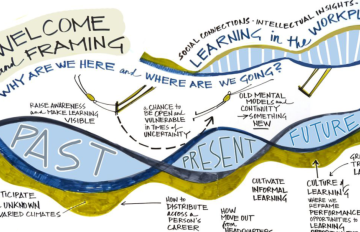 WELCOME
and FRAMING
SOCIAL CONNECTIONS · INTELLECTUAL INSIGHTS ·
LEARNING in the WORKPL
WHY ARE WE HERE and WHERE ARE WE GOING?
RAISE AWARENESS
and MAKE LEARNING
VISIBLE
A CHANCE to
BE OPEN and
VULNERABLE
in TIMES of
UNCERTAINTY
OLD MENTAL
MODELS and
CONTINUITY
→ SOMETHING
NEW
PAST
PRESENT
FUTURE
TICIPATE
UNKNOWN
VARIED CLIMATES
HOW to
DISTRIBUTE
ACROSS a
PERSON'S
CAREER
HOW
MOVE OUT
from
CULTIVATE
INFORMAL
LEARNING
CULTURE of
LEARNING
WHERE WE
REFRAME
PERFORMANCE
OPPORTUNITIES to
LEARNING